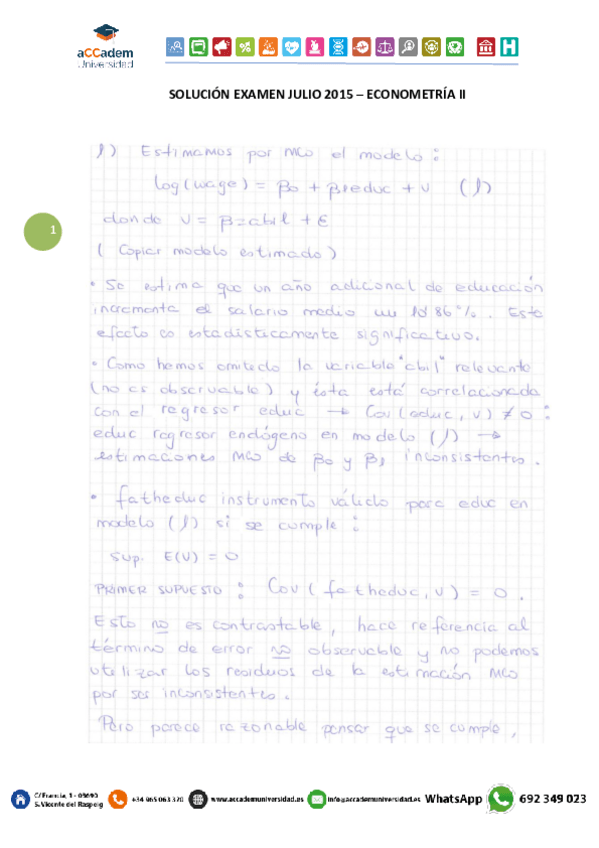 aCCadem
Universidad
SOLUCIÓN EXAMEN JULIO 2015 – ECONOMETRÍA II
1) Estimamos por MCO el modelo:
log(wage) = β0 + β1educ + v (1)
donde v = β2abil + ε
1
( Copiar modelo estimado )
• Se estima que un año adicional de educación
incrementa el salario medio un 10'86%. Este
efecto es estadísticamente significativo.
• Como hemos omitido la variable "abil" relevante
(no es observable) y ésta está correlacionada
con el regresor educ → Cov(educ, v) ≠ 0 :
educ regresor endógeno en modelo (1) →
estimaciones MCO de β0 y β1 inconsistentes.
• fatheduc instrumento válido para educ en
modelo (1) si se cumple :
Sup. E(v) = 0
PRIMER SUPUESTO : Cov ( fatheduc, v ) = 0 .
Esto no es contrastable, hace referencia al
término de error no observable y no podemos
utilizar los residuos de la estimación MCO
por ser inconsistentes.
Pero parece razonable pensar que se cumple,
C/ Francia, 1 - 03690
S. Vicente del Raspeig
+34 965 063 320
www.accademuniversidad.es
info@accademuniversidad.es
WhatsApp
692 349 023